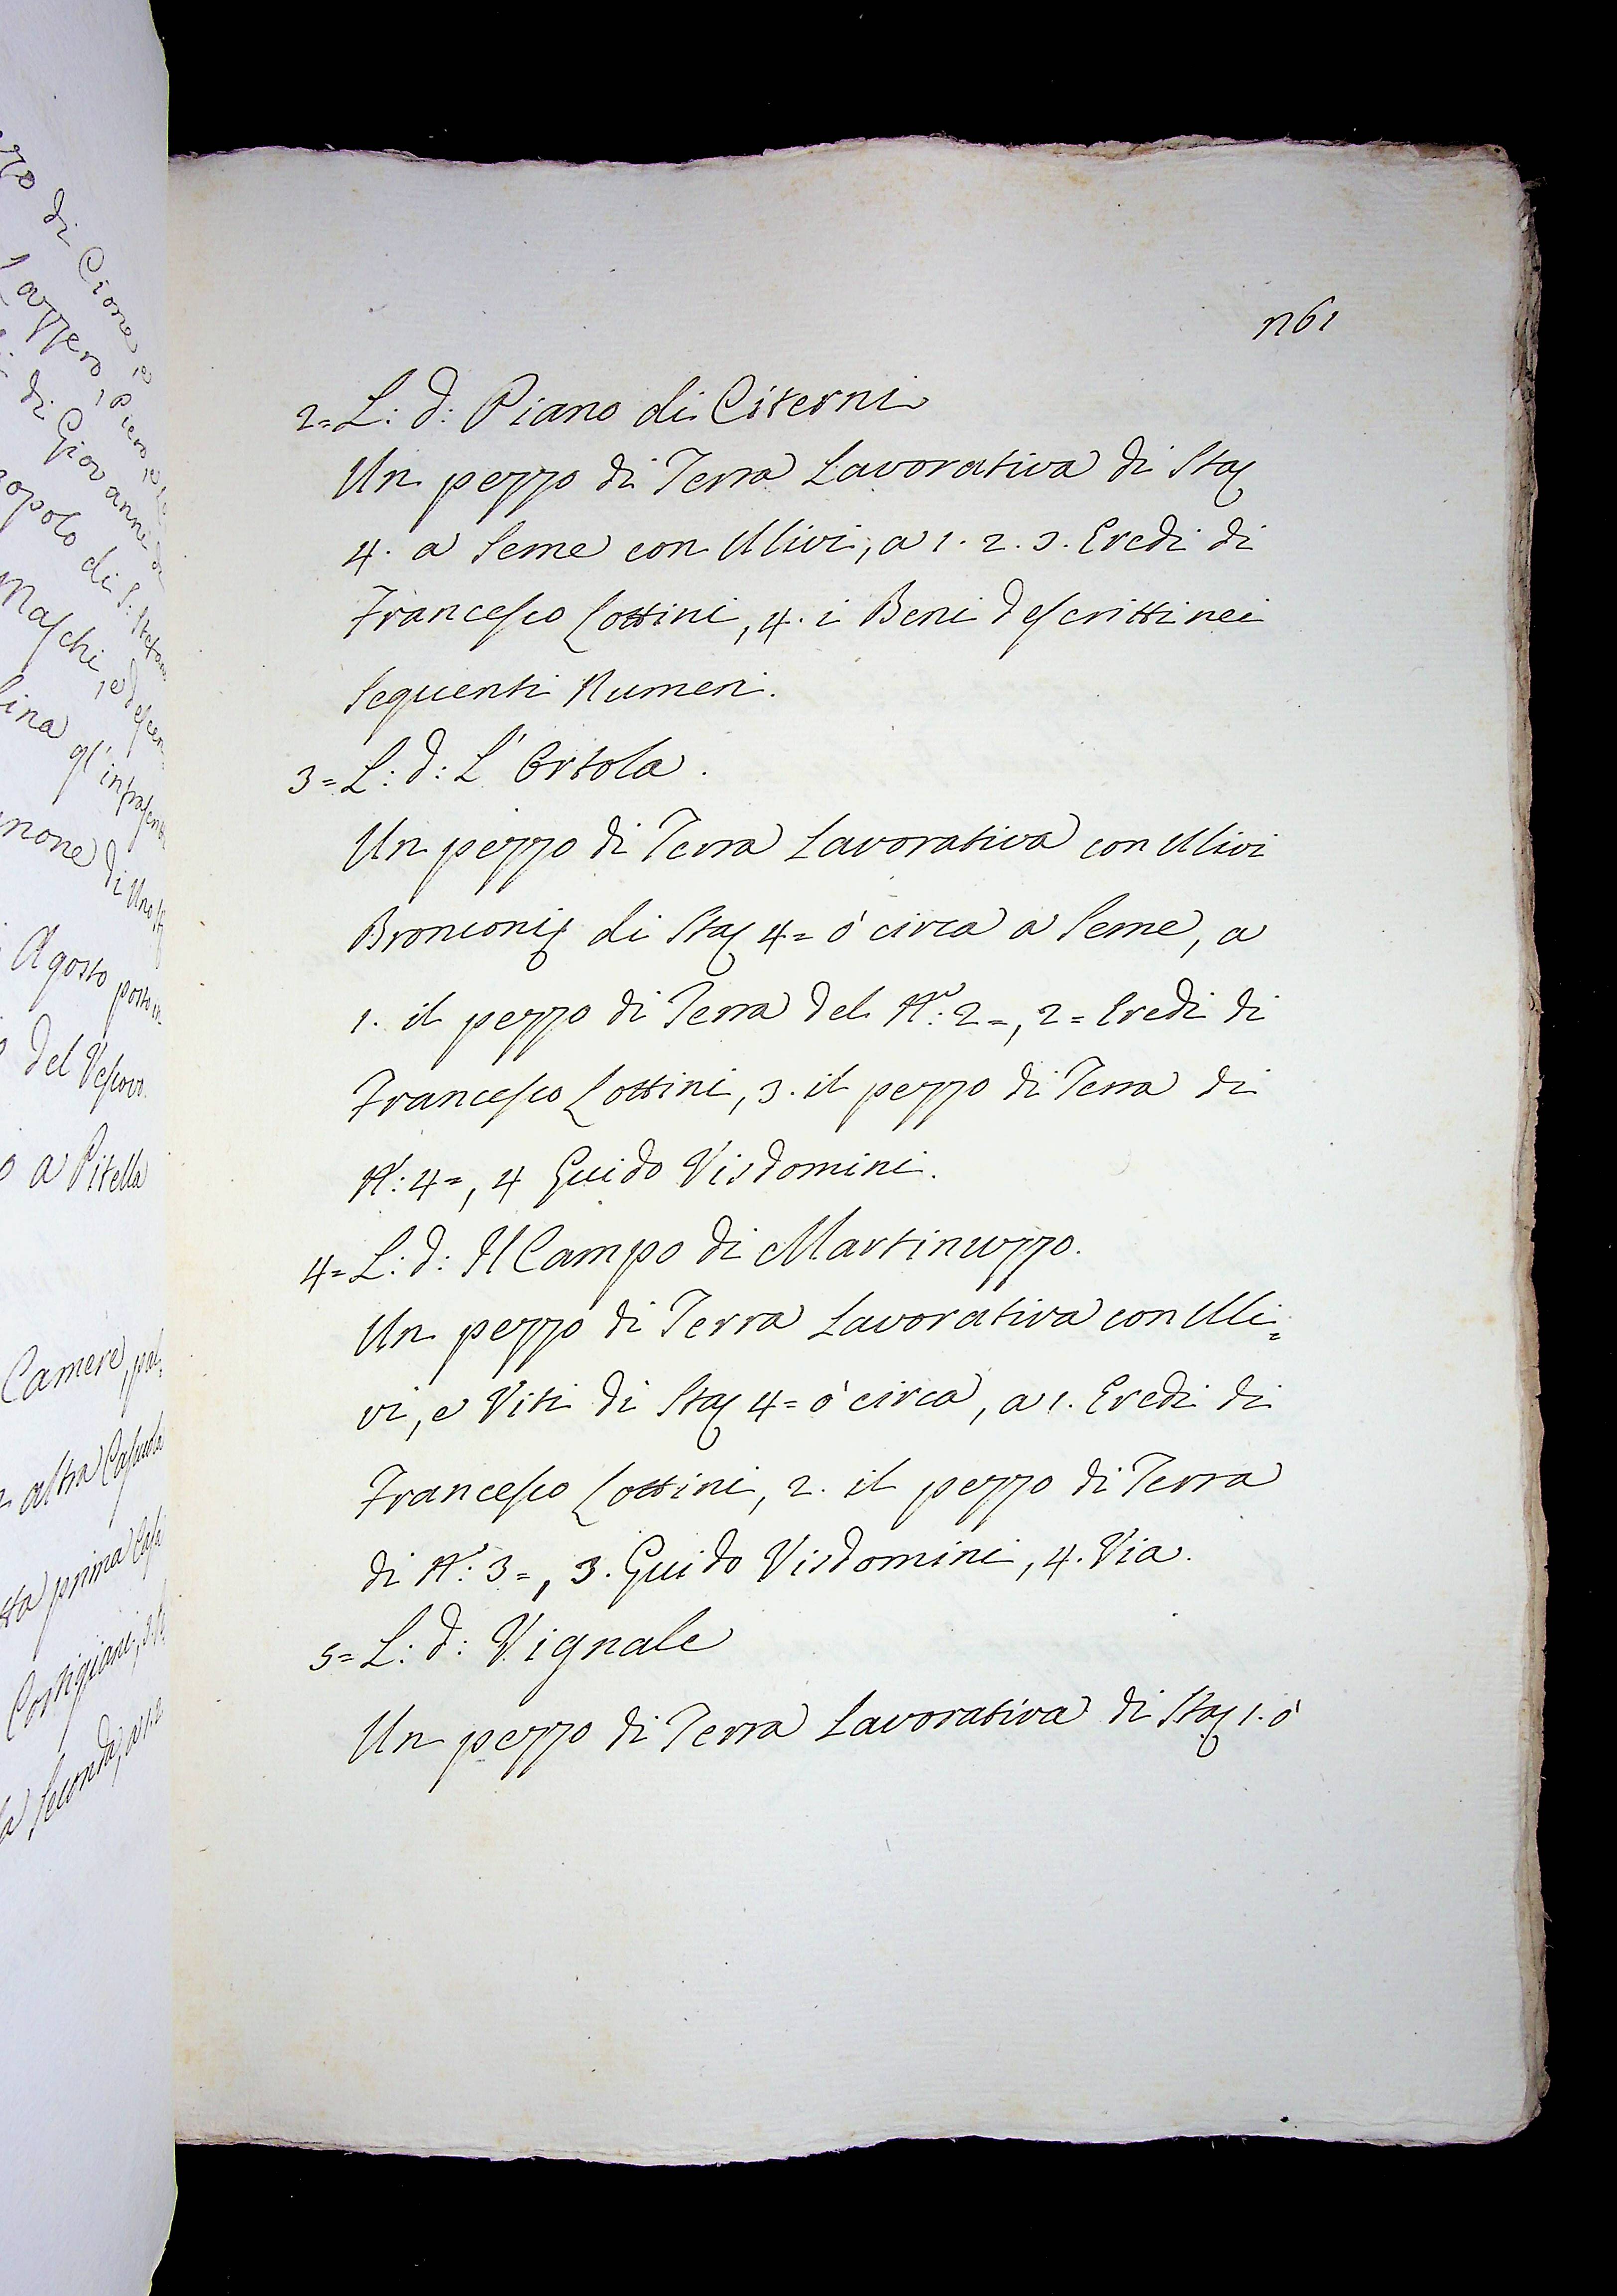 n61
2= L: d: Piano di Citerni
Un pezzo di Terra Lavorativa di Staj
4. a Seme con Ulivi, a 1. 2. 3. Eredi di
Francesco Lottini, 4. i Beni descritti nei
sequenti Numeri.
3= L: d: L' Ortola.
Un pezzo di Terra Lavorativa con Ulivi
Bronconij di Staj 4= ò circa a Seme, a
1. il pezzo di Terra del N.º: 2=, 2= Eredi di
Francesco Lottini, 3. il pezzo di Terra di
N: 4=, 4 Guido Visdomini.
4= L: d: Il Campo di Martinuzzo.
Un pezzo di Terra Lavorativa con Uli=
vi, e Viti di Staj 4= ò circa, a 1. Eredi di
Francesco Lottini, 2. il pezzo di Terra
di N: 3=, 3. Guido Visdomini, 4. Via.
5= L: d: Vignale
Un pezzo di Terra Lavorativa di Staj 1. ò
di Cione, e
di Giovanni
opolo di S. Stefano
Maschi, e
lina gl'
none di
Agosto
del Vescovo
a Pitella
Camere, pal=
altra Casuola
prima
Cortigiani,
la Seconda, a 1. 2